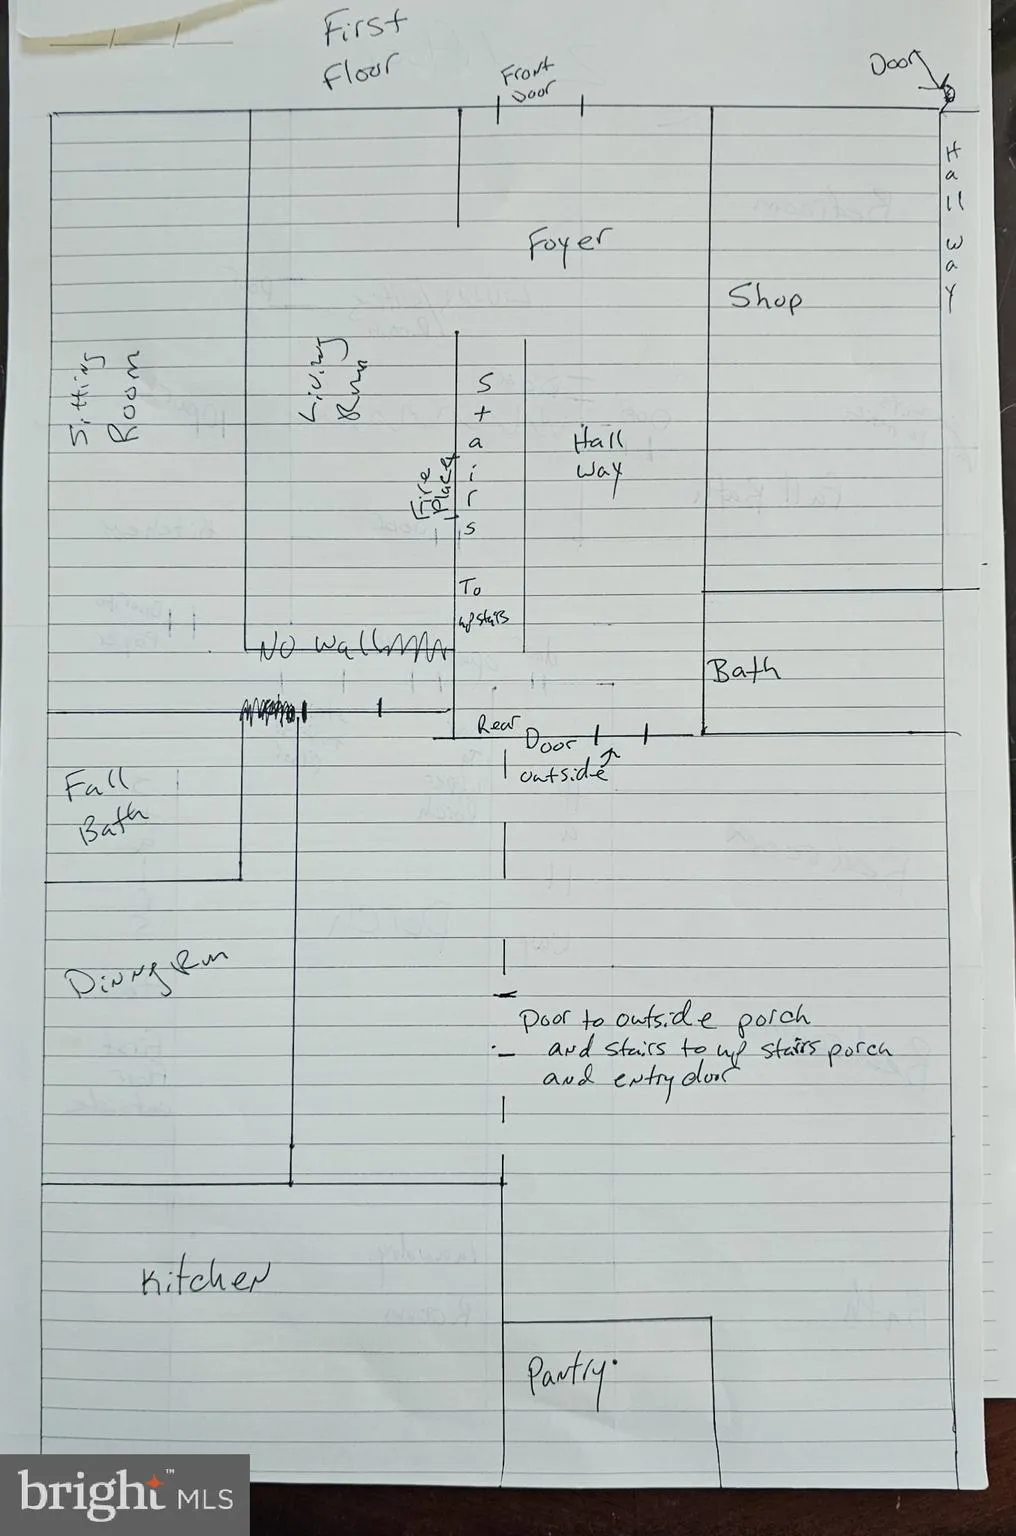 First
floor
Front
Door
Door
Hall way
Foyer
Shop
Sitting
Room
Living
Rm
Stairs
To
upstairs
Fire
Place
Hall
way
No wall
Bath
Rear
Door
outside
Full
Bath
Dinng Rm
Door to outside porch
and stairs to up stairs porch
and entry door
Kitchen
Pantry
bright™ MLS